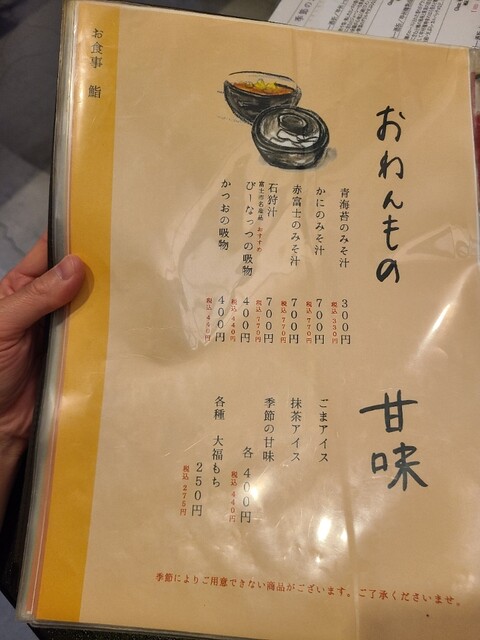 お食事 鮨
おわんもの
青海苔のみそ汁 300円
税込 330円
かにのみそ汁 700円
税込 770円
赤富士のみそ汁 700円
税込 770円
石狩汁 700円
税込 770円
富士市名産品 おすすめ
ぴーなっつの吸物 400円
税込 440円
かつおの吸物 400円
税込 440円
甘味
ごまアイス
抹茶アイス
季節の甘味
各 400円
税込 440円
各種 大福もち 250円
税込 275円
季節によりご用意できない商品がございます。ご了承くださいませ。